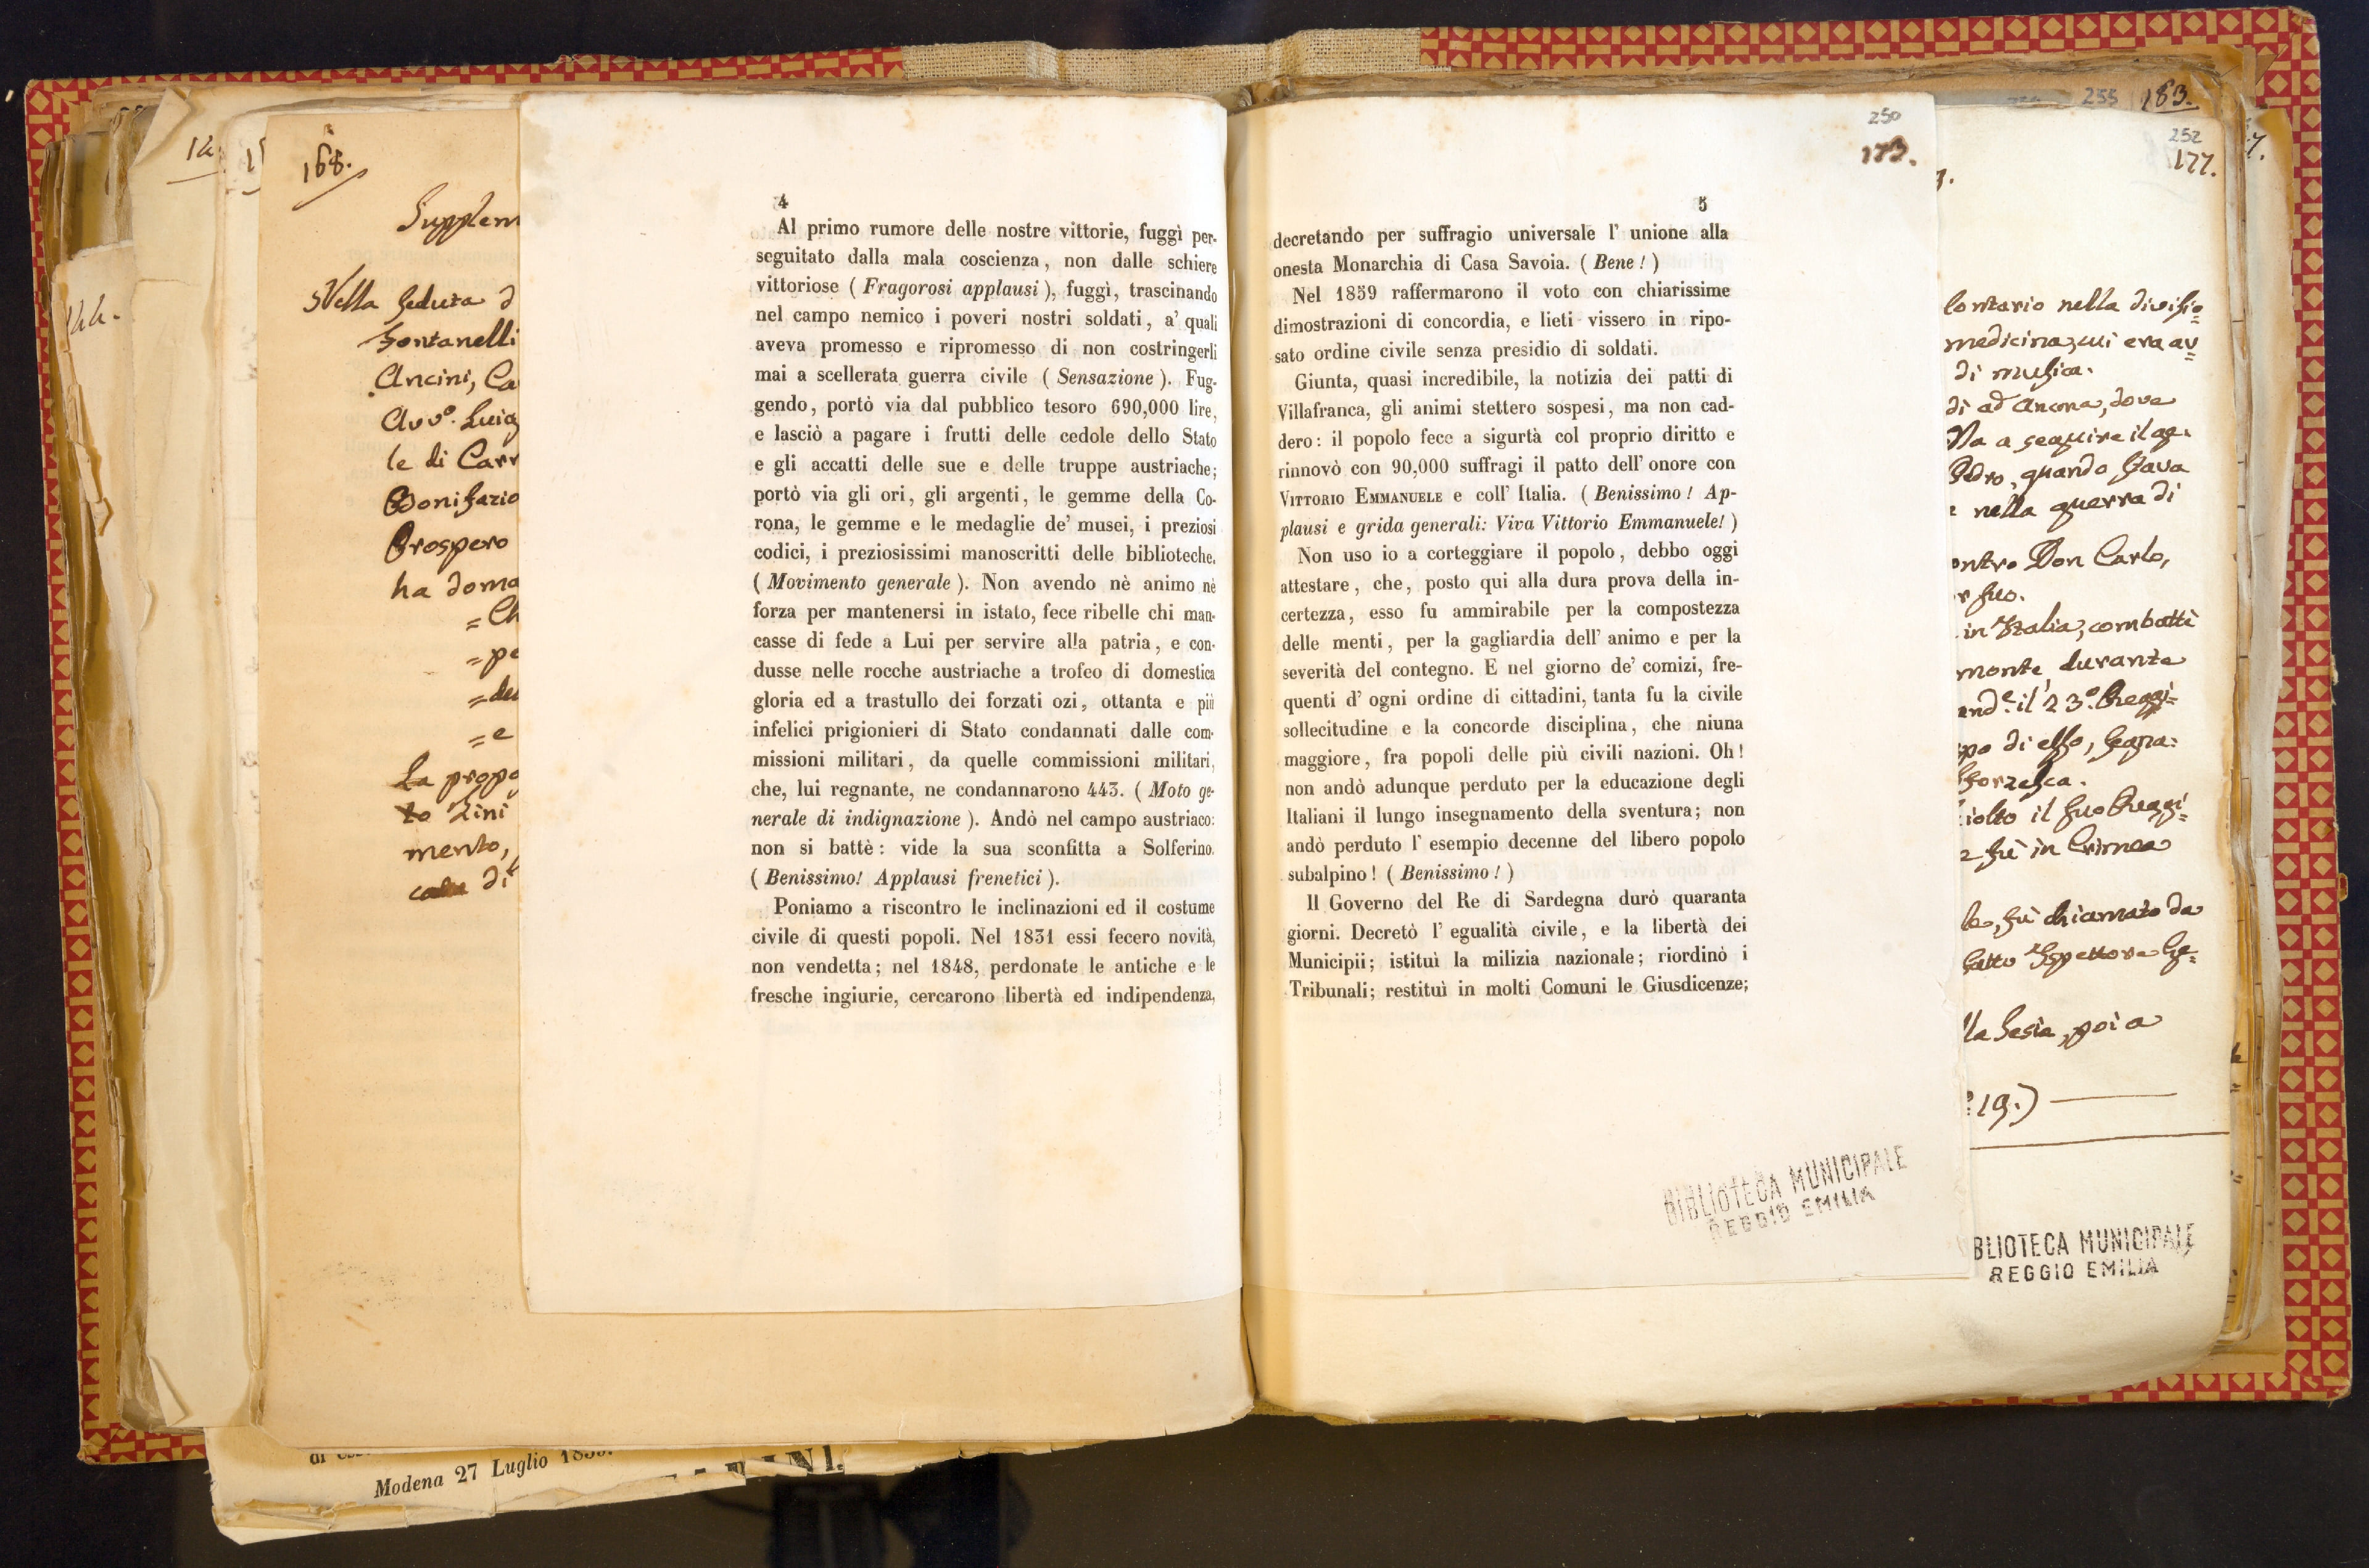 168.
Supplem
Nella Seduta d
Fontanelli
Ancini, Ca
Avvº. Luig
le di Carr
Bonifazio
Prospero
ha doma
=Ch
=pe
=de
=e
La propo
to Zini
mento,
di
Modena 27 Luglio
4
Al primo rumore delle nostre vittorie, fuggì per-
seguitato dalla mala coscienza, non dalle schiere
vittoriose ( Fragorosi applausi ), fuggì, trascinando
nel campo nemico i poveri nostri soldati, a' quali
aveva promesso e ripromesso di non costringerli
mai a scellerata guerra civile ( Sensazione ). Fug-
gendo, portò via dal pubblico tesoro 690,000 lire,
e lasciò a pagare i frutti delle cedole dello Stato
e gli accatti delle sue e delle truppe austriache;
portò via gli ori, gli argenti, le gemme della Co-
rona, le gemme e le medaglie de' musei, i preziosi
codici, i preziosissimi manoscritti delle biblioteche.
( Movimento generale ). Non avendo nè animo nè
forza per mantenersi in istato, fece ribelle chi man-
casse di fede a Lui per servire alla patria, e con-
dusse nelle rocche austriache a trofeo di domestica
gloria ed a trastullo dei forzati ozi, ottanta e più
infelici prigionieri di Stato condannati dalle com-
missioni militari, da quelle commissioni militari,
che, lui regnante, ne condannarono 443. ( Moto ge-
nerale di indignazione ). Andò nel campo austriaco:
non si battè: vide la sua sconfitta a Solferino.
( Benissimo! Applausi frenetici ).
Poniamo a riscontro le inclinazioni ed il costume
civile di questi popoli. Nel 1831 essi fecero novità,
non vendetta; nel 1848, perdonate le antiche e le
fresche ingiurie, cercarono libertà ed indipendenza,
250
173.
5
decretando per suffragio universale l' unione alla
onesta Monarchia di Casa Savoia. ( Bene! )
Nel 1859 raffermarono il voto con chiarissime
dimostrazioni di concordia, e lieti vissero in ripo-
sato ordine civile senza presidio di soldati.
Giunta, quasi incredibile, la notizia dei patti di
Villafranca, gli animi stettero sospesi, ma non cad-
dero: il popolo fece a sigurtà col proprio diritto e
rinnovò con 90,000 suffragi il patto dell' onore con
VITTORIO EMMANUELE e coll' Italia. ( Benissimo! Ap-
plausi e grida generali: Viva Vittorio Emmanuele! )
Non uso io a corteggiare il popolo, debbo oggi
attestare, che, posto qui alla dura prova della in-
certezza, esso fu ammirabile per la compostezza
delle menti, per la gagliardia dell' animo e per la
severità del contegno. E nel giorno de' comizi, fre-
quenti d' ogni ordine di cittadini, tanta fu la civile
sollecitudine e la concorde disciplina, che niuna
maggiore, fra popoli delle più civili nazioni. Oh!
non andò adunque perduto per la educazione degli
Italiani il lungo insegnamento della sventura; non
andò perduto l' esempio decenne del libero popolo
subalpino! ( Benissimo! )
Il Governo del Re di Sardegna durò quaranta
giorni. Decretò l' egualità civile, e la libertà dei
Municipii; istituì la milizia nazionale; riordinò i
Tribunali; restituì in molti Comuni le Giusdicenze;
BIBLIOTECA MUNICIPALE
REGGIO EMILIA
255 183.
252
177.
lontario nella divisio=
medicina, cui era av=
di musica.
dì ad Ancona, dove
Ma a seguire il ge.
Pedro, quando stava
nella guerra di
ontro Don Carlo,
r suo.
in Italia, combattè
monte, durante
il 23º. Reggi=
po di esso, segna=
Sforzesca.
iolto il suo Reggi=
fù in Crimea
le, fù chiamato da
fatto Ispettore Ge=
lla Sesia, poi a
19.)
BLIOTECA MUNICIPALE
REGGIO EMILIA